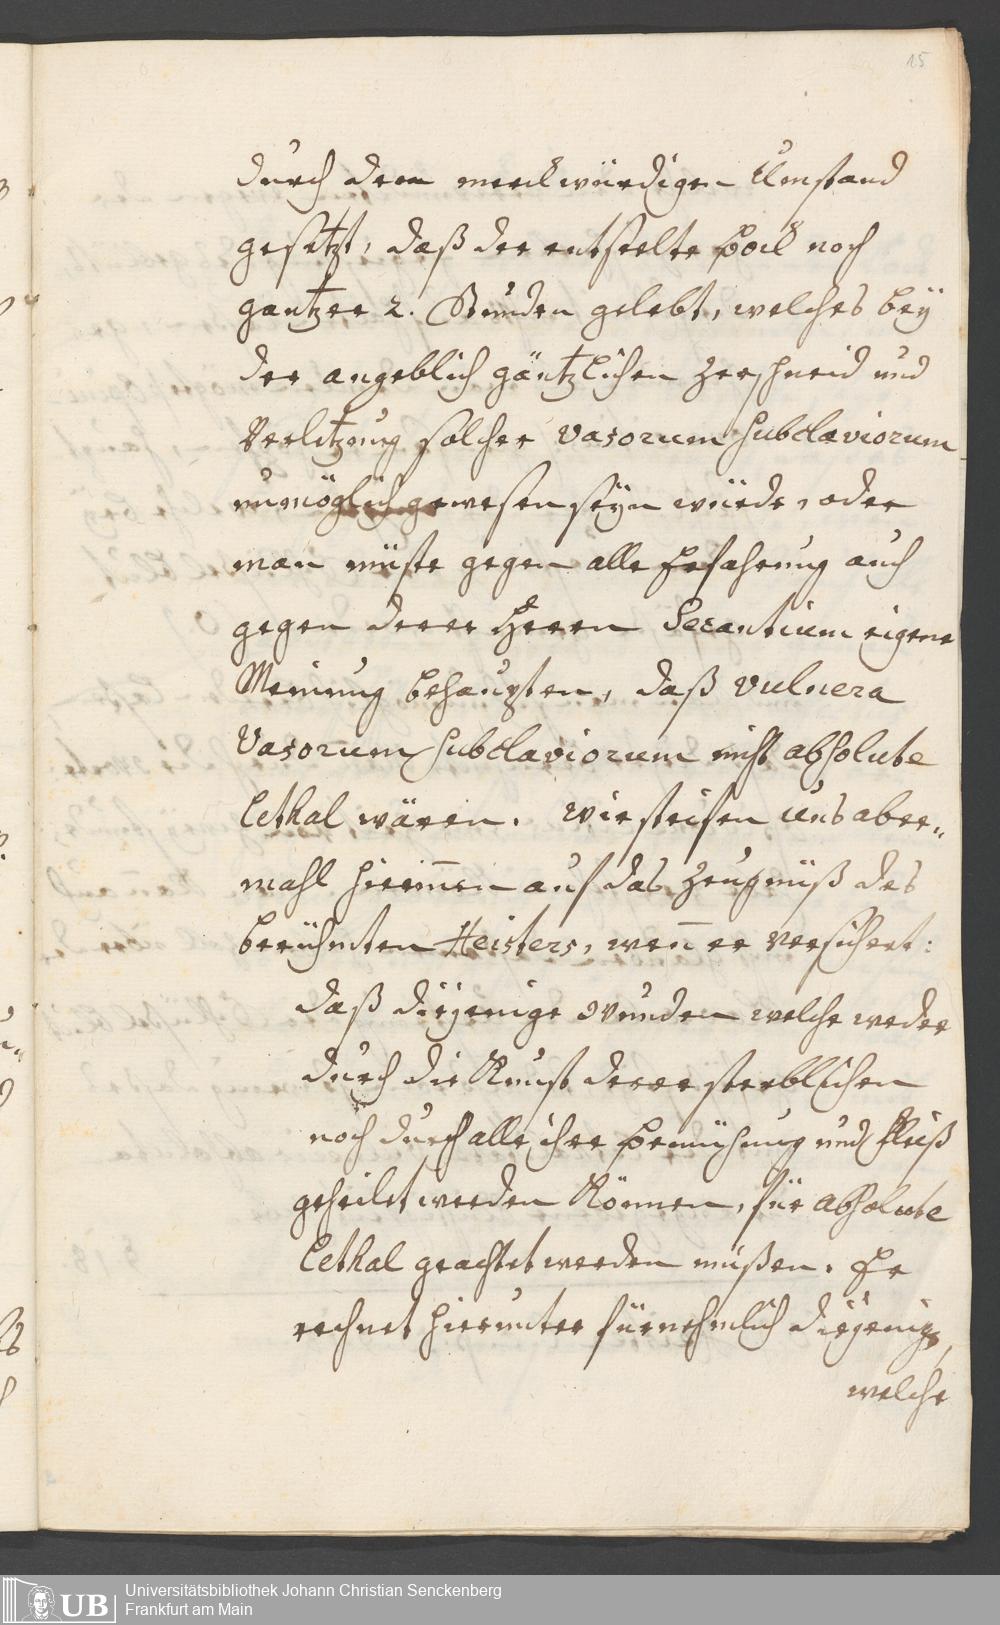 15
durch den merckwürdigen Umstand
gesetzt, daß der entseelte Böck noch
gantzer 2. Stunden gelebt, welches bey
der angeblich gäntzlichen Zerschneid und
Verletzung solcher Vasorum Subclaviorum
unmöglich gewesen seyn würde, oder
man müste gegen alle Erfahrung auch
gegen derer Herrn Secantium eigene
Meinung behaupten, daß vulnera
Vasorum Subclaviorum nicht absolute
lethal wären. Wir steifen uns aber„
mahl hierinnen auf das Zeugnüß des
berühmten Heisters, wen̄ er versichert:
daß diejenige Wunden welche weder
durch die Kunst derer sterblichen
noch durch alle ihre Bemühung und Fleiß
geheilet werden können, für absolute
lethal geachtet werden müßen. Er
rechnet hierunter fürnehmlich diejenige,
welche
UB
Universitätsbibliothek Johann Christian Senckenberg
Frankfurt am Main